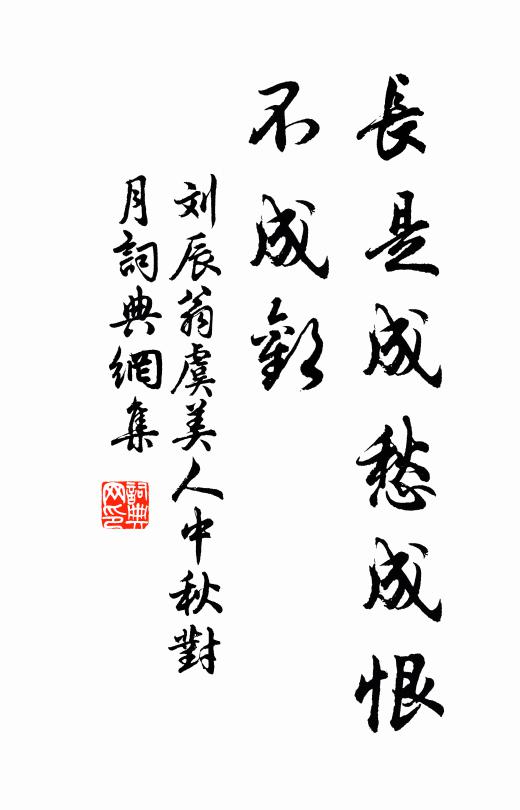 長是成愁成恨
不成歡
刘辰翁虞美人中秋對
月詞典網集
詞典
网印